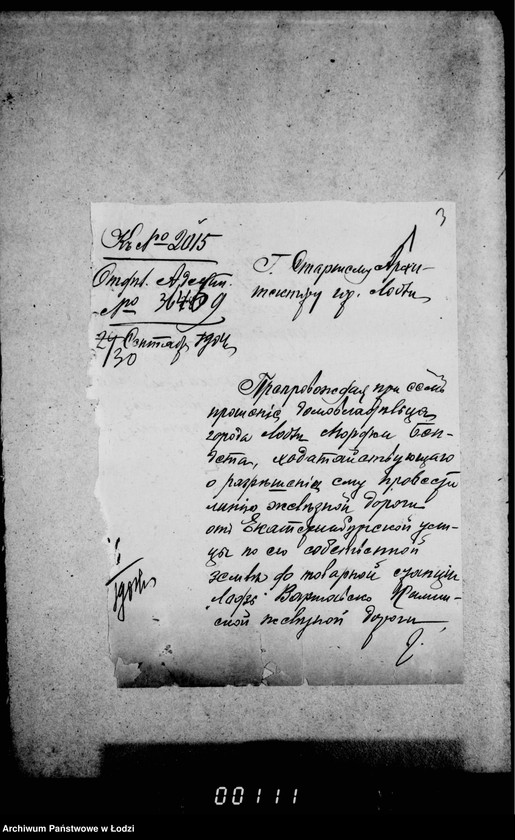 3
Къ № 2015
Отпр.
№
Сентябр
30
Г. Старшему Архи-
тектору гор. Лодзи
Препровождая при семъ
прошеніе домовладѣльца
города Лодзи
ходатайствующаго
о разрѣшеніи ему провести
линію желѣзной дороги
отъ Екатеринбургской ули-
цы по его собственной
землѣ до товарной станціи
"Лодзь" Варшавско Калиш-
ской желѣзной дороги,
00111
Archiwum Państwowe w Łodzi